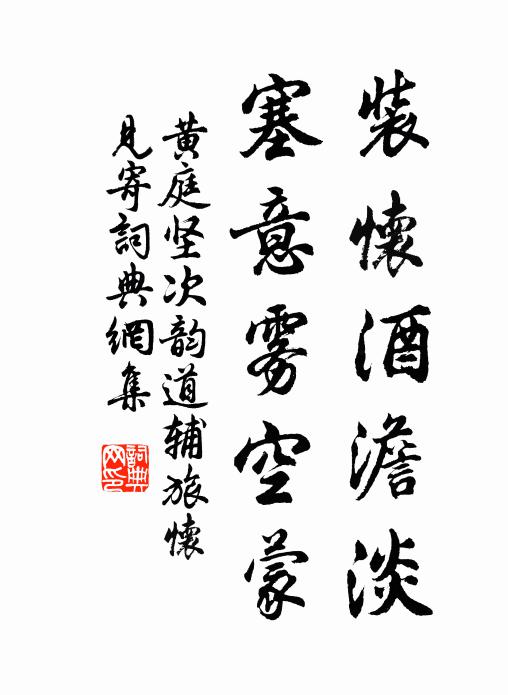 裝懷酒澹淡
塞意雾空蒙
黄庭坚次韵道辅旅懷
見寄詞典網集
詞典网印